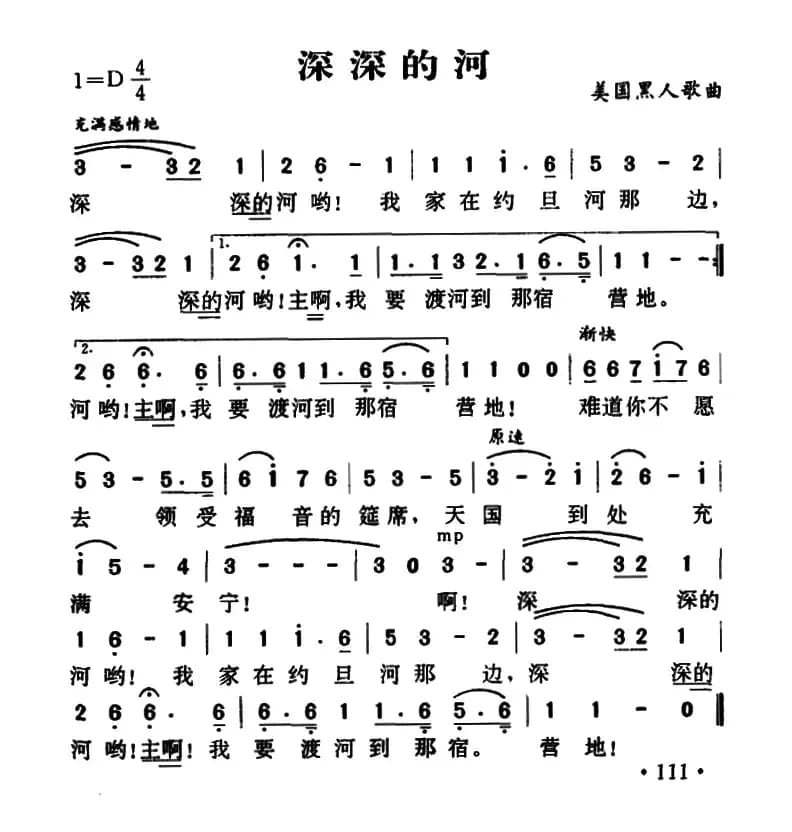 深深的河
1=D 4/4
美国黑人歌曲
充满感情地
3 - 32 1 | 2 6 - 1 | 1 1 i · 6 | 5 3 - 2 |
深 深的河哟! 我 家在约 旦 河那 边,
1.
3 - 32 1 | 2 6 1 · 1 | 1 · 1 3 2 · 1 6 · 5 | 1 1 - - :‖
深 深的河哟!主啊,我 要 渡河到 那宿 营地。
2. 渐快
2 6 6 · 6 | 6 · 6 1 1 · 6 5 · 6 | 1 1 0 0 | 6 6 7 i 7 6 |
河哟!主啊,我 要 渡河到 那宿 营地! 难道你不 愿
原速
5 3 - 5 · 5 | 6 i 7 6 | 5 3 - 5 | 3 - 2 i | 2 6 - i |
去 领受福 音的 筵席, 天国 到处 充
mp
i 5 - 4 | 3 - - - | 3 0 3 - | 3 - 32 1 |
满 安宁! 啊! 深 深的
1 6 - 1 | 1 1 i · 6 | 5 3 - 2 | 3 - 32 1 |
河哟! 我 家在约 旦 河那 边,深 深的
2 6 6 · 6 | 6 · 6 1 1 · 6 5 · 6 | 1 1 - 0 ‖
河哟!主啊!我 要 渡河到 那宿。 营地!
· 111 ·